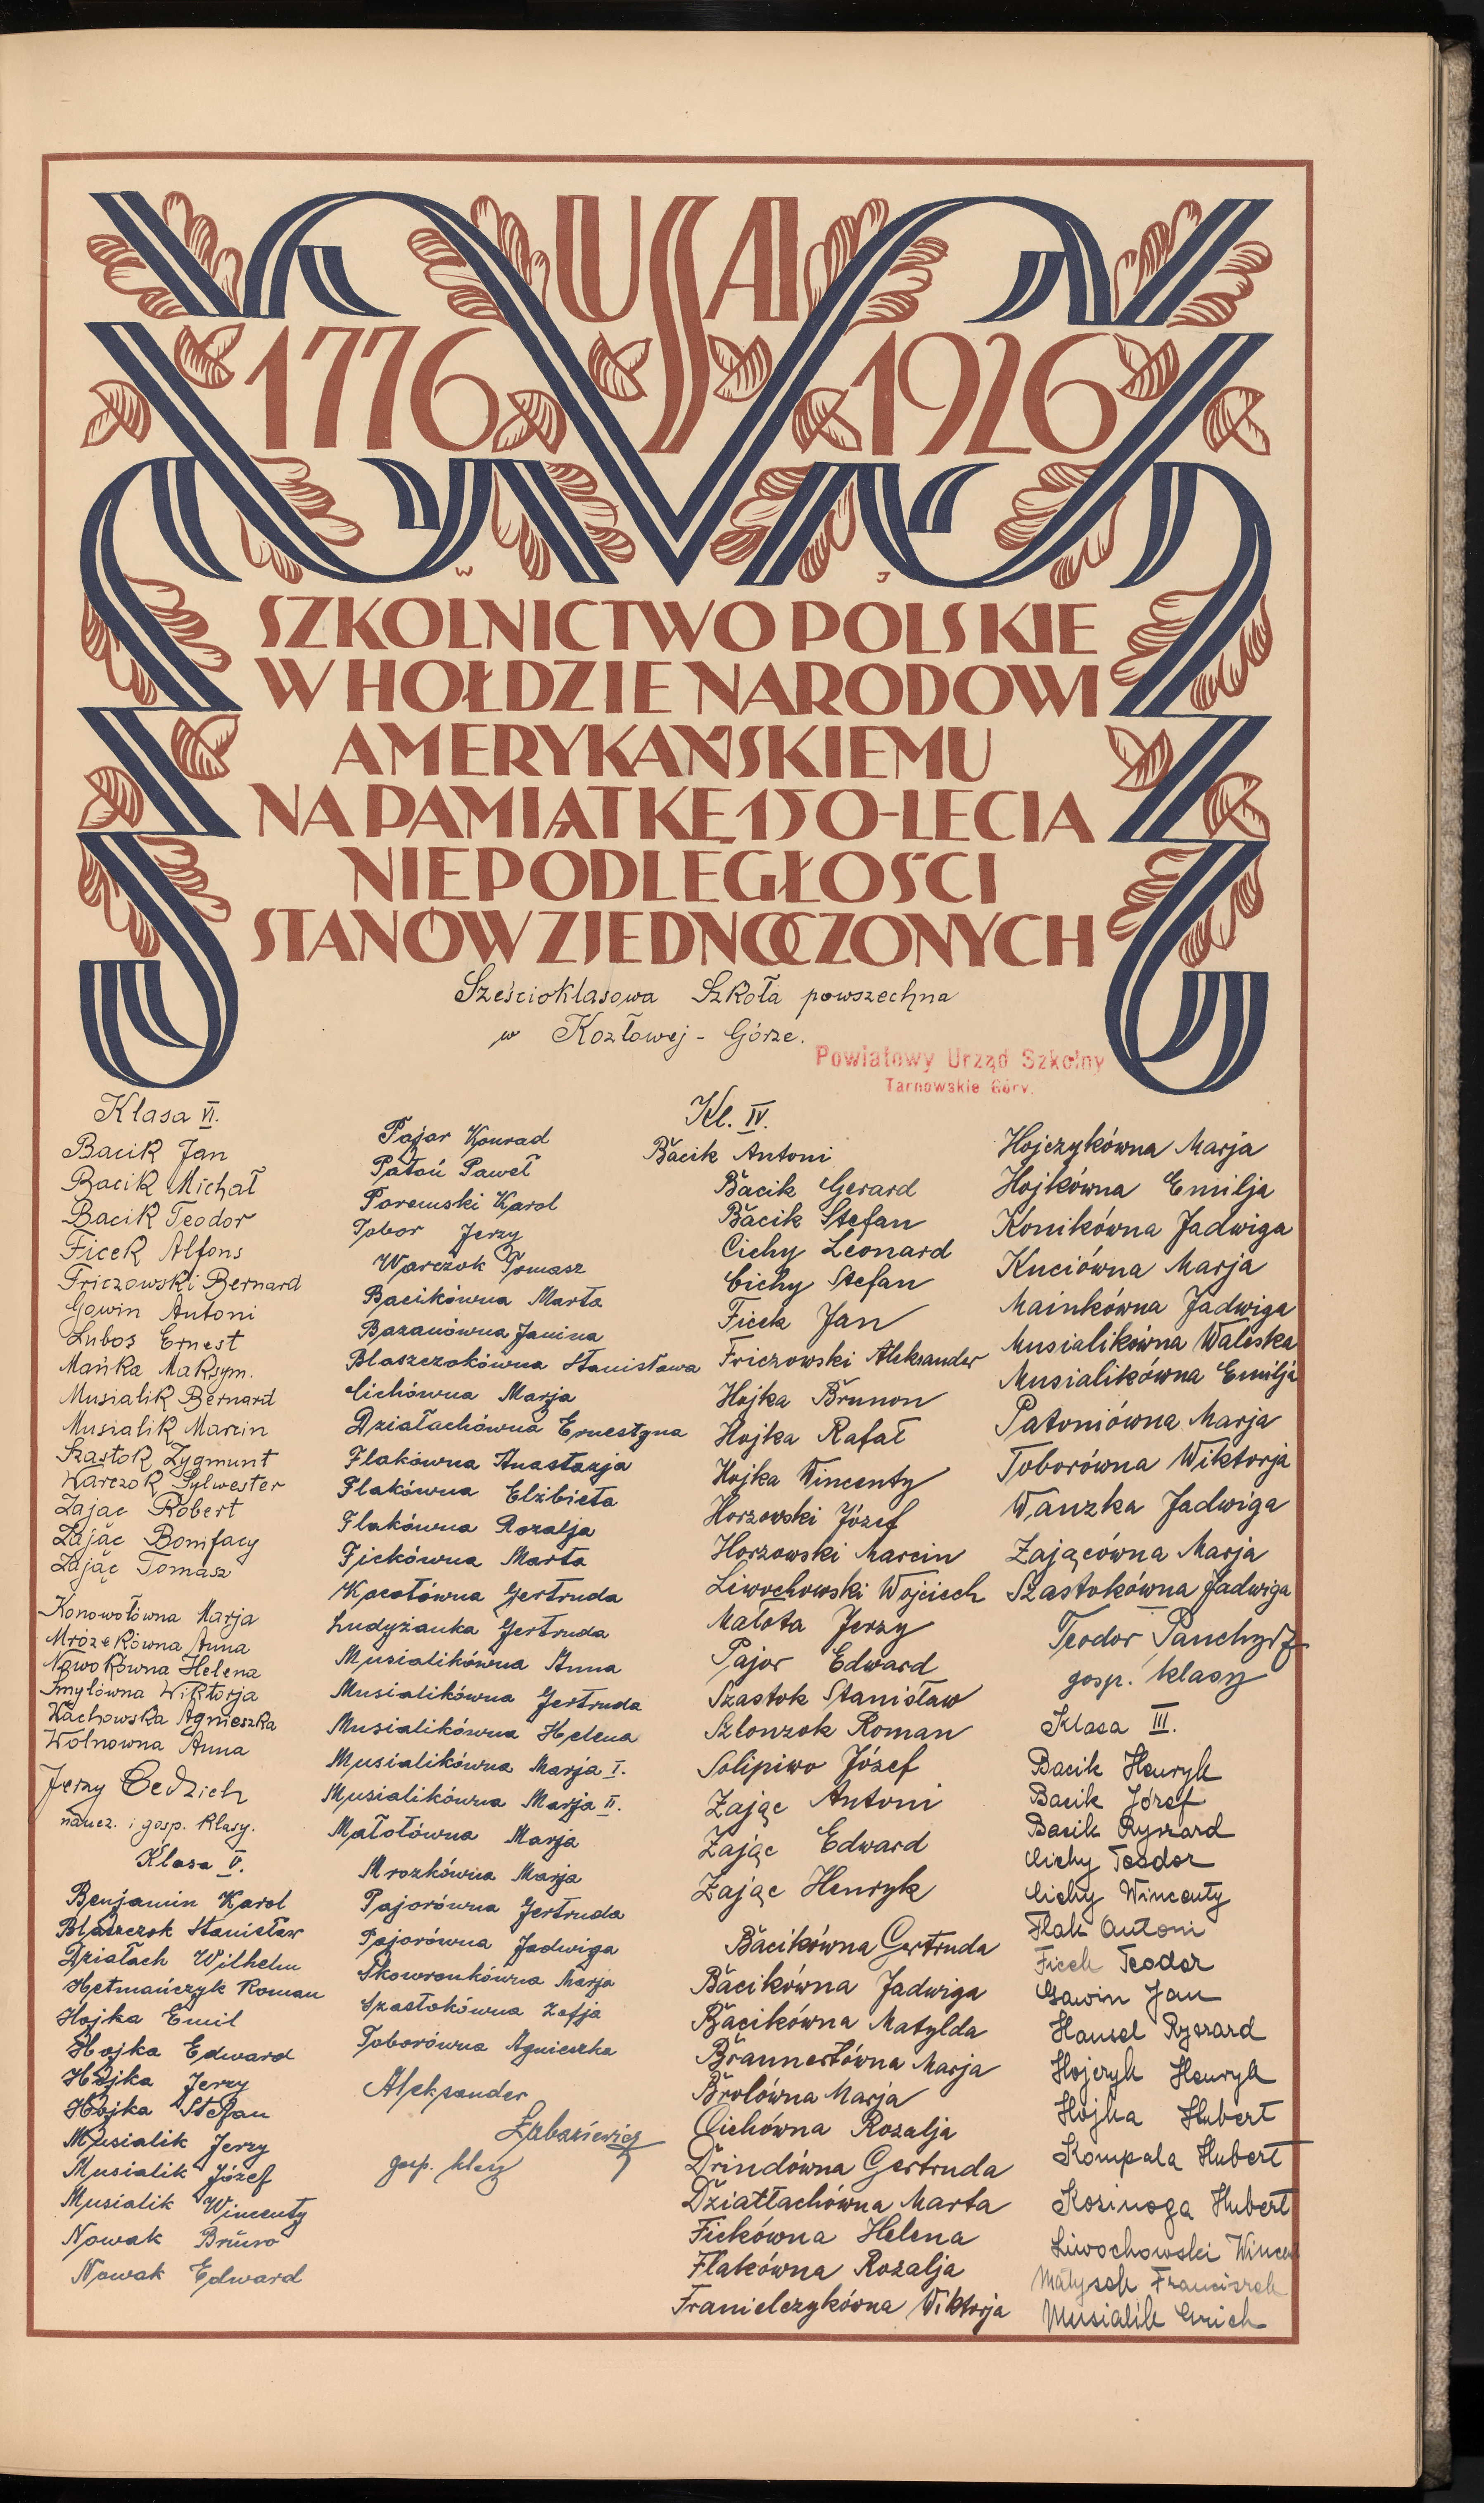 USA
1776 1926
W J
SZKOLNICTWO POLSKIE
W HOŁDZIE NARODOWI
AMERYKAŃSKIEMU
NA PAMIĄTKĘ 150-LECIA
NIEPODLEGŁOŚCI
STANÓW ZJEDNOCZONYCH
Sześcioklasowa Szkoła powszechna
w Kozłowej-Górze.
Powiatowy Urząd Szkolny
Tarnowskie Góry.
Klasa VI.
Bacik Jan
Bacik Michał
Bacik Teodor
Ficek Alfons
Friczowski Bernard
Gowin Antoni
Lubos Ernest
Mańka Maksym.
Musialik Bernard
Musialik Marcin
Szastok Zygmunt
Warczok Sylwester
Zając Robert
Zając Bonifacy
Zając Tomasz
Konowołówna Marja
Mrózekówna Anna
Nowokówna Helena
Smyłówna Wiktorja
Wachowska Agnieszka
Wolnowna Anna
Jerzy Cedzich
naucz. i gosp. klasy.
Klasa V.
Benjamin Karol
Blaszczok Stanisław
Działach Wilhelm
Hetmańczyk Roman
Hojka Emil
Hojka Edward
Hojka Jerzy
Hojka Stefan
Musialik Jerzy
Musialik Józef
Musialik Wincenty
Nowak Bruno
Nowak Edward
Pajor Konrad
Patoń Paweł
Poremski Karol
Tobor Jerzy
Warczok Tomasz
Bacikówna Marta
Bazanówna Janina
Blaszczokówna Stanisława
Cichówna Marja
Działachówna Ernestyna
Flakówna Anastazja
Flakówna Elżbieta
Flakówna Rozalja
Fickówna Marta
Kocotówna Gertruda
Ludyżanka Gertruda
Musialikówna Anna
Musialikówna Gertruda
Musialikówna Helena
Musialikówna Marja I.
Musialikówna Marja II.
Małotówna Marja
Mrozkówna Marja
Pajorówna Gertruda
Pajorówna Jadwiga
Skowronkówna Marja
Szastokówna Zofja
Toborówna Agnieszka
Aleksander
gosp. klasy
Kl. IV.
Bacik Antoni
Bacik Gerard
Bacik Stefan
Cichy Leonard
Cichy Stefan
Ficek Jan
Friczowski Aleksander
Hojka Brunon
Hojka Rafał
Hojka Wincenty
Horzowski Józef
Horzowski Marcin
Liwochowski Wojciech
Małota Jerzy
Pajor Edward
Szastok Stanisław
Szlonzok Roman
Solipiwo Józef
Zając Antoni
Zając Edward
Zając Henryk
Bacikówna Gertruda
Bacikówna Jadwiga
Bacikówna Matylda
Brannertówna Marja
Brolówna Marja
Cichówna Rozalja
Drindówna Gertruda
Działłachówna Marta
Fickówna Helena
Flakówna Rozalja
Franielczykówna Wiktorja
Hojczykówna Marja
Hojkówna Emilja
Konikówna Jadwiga
Kuciówna Marja
Mainkówna Jadwiga
Musialikówna Waleska
Musialikówna Emilja
Patoniówna Marja
Toborówna Wiktorja
Wanzka Jadwiga
Zającówna Marja
Szastokówna Jadwiga
Teodor
gosp. klasy
Klasa III.
Bacik Henryk
Bacik Józef
Bacik Ryszard
Cichy Teodor
Cichy Wincenty
Flak Antoni
Ficek Teodor
Gawin Jan
Hansel Ryszard
Hojczyk Henryk
Hojka Hubert
Kompala Hubert
Kosinoga Hubert
Liwochowski
Małysek Franciszek
Musialik Erich